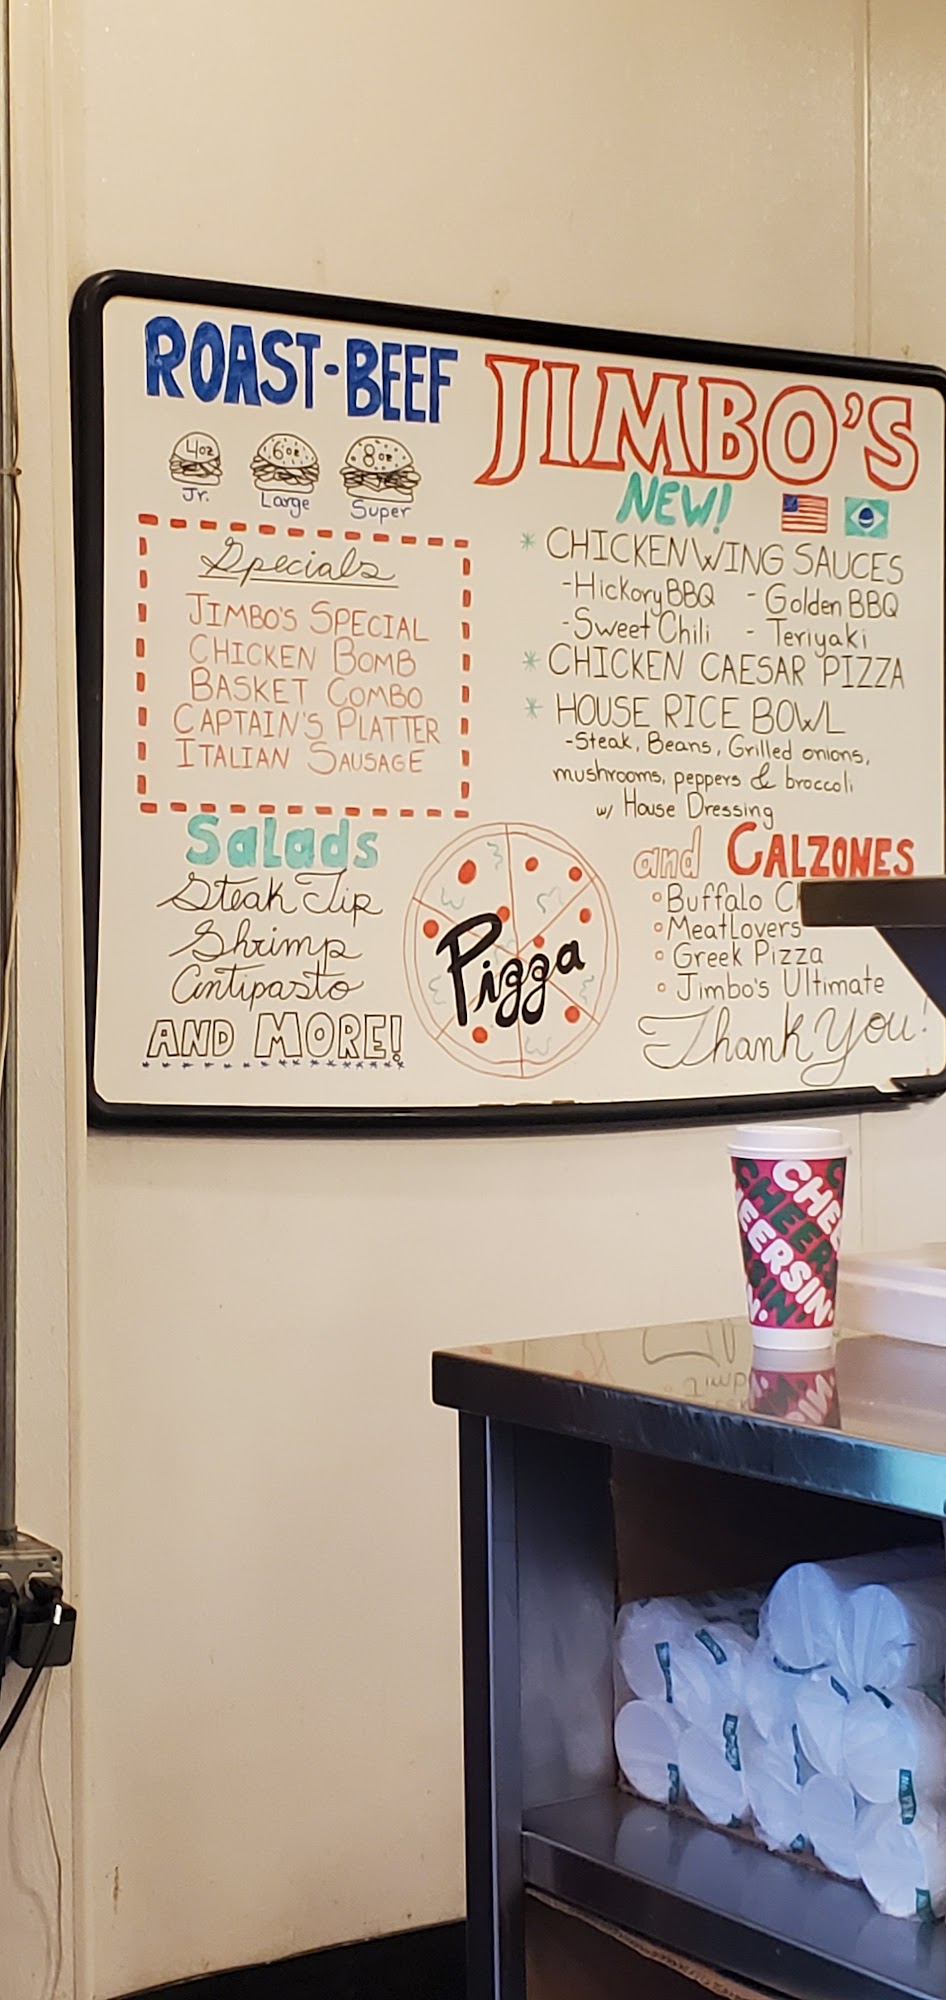 ROAST-BEEF
4oz 6oz 8oz
Jr. Large Super
Specials
JIMBO'S SPECIAL
CHICKEN BOMB
BASKET COMBO
CAPTAIN'S PLATTER
ITALIAN SAUSAGE
Salads
Steak Tip
Shrimp
Antipasto
AND MORE!
Pizza
JIMBO'S
NEW!
* CHICKEN WING SAUCES
-Hickory BBQ - Golden BBQ
-Sweet Chili - Teriyaki
* CHICKEN CAESAR PIZZA
* HOUSE RICE BOWL
-Steak, Beans, Grilled onions,
mushrooms, peppers & broccoli
w/ House Dressing
and CALZONES
Buffalo
MeatLovers
Greek Pizza
Jimbo's Ultimate
Thank You!
CHEE
CHEERS
EERSIN'